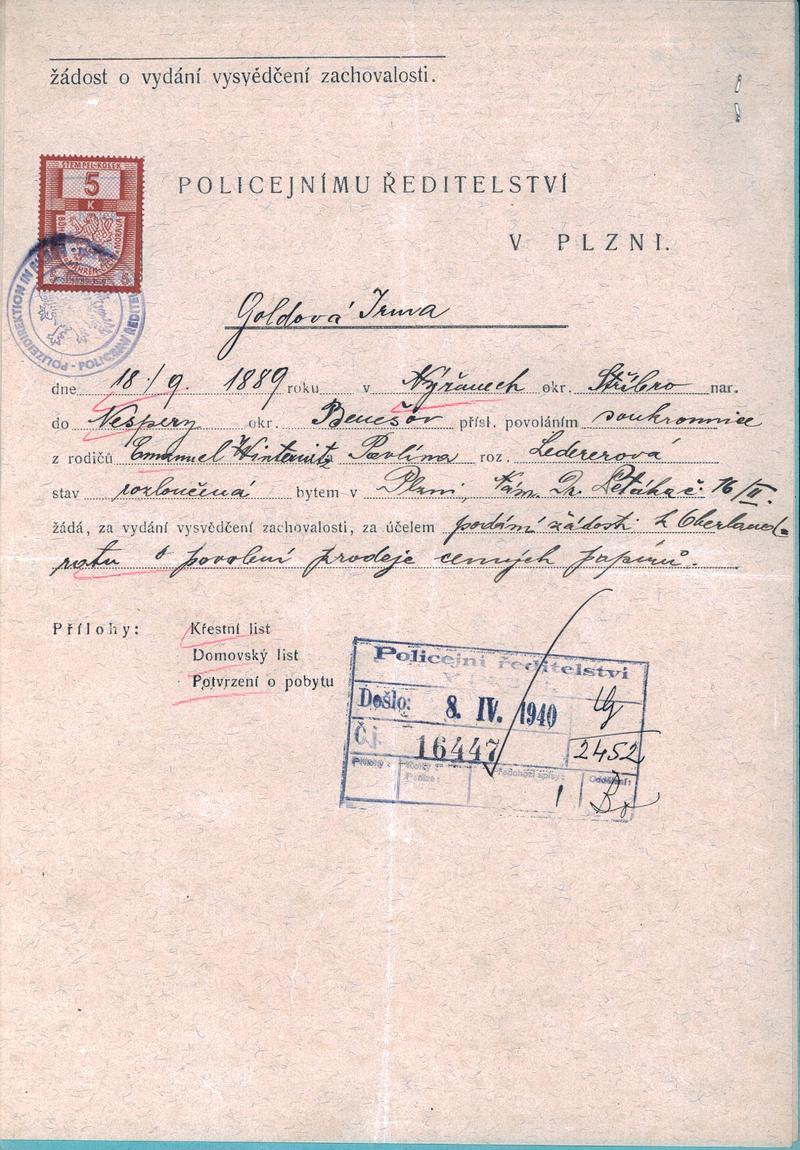 žádost o vydání vysvědčení zachovalosti.
STEMPEL-KOLEK
5
K
POLICEJNÍMU ŘEDITELSTVÍ
V PLZNI.
Goldová Irma
dne 18./9. 1889 roku v Nýřanech okr. Stříbro nar.
do Nespery okr. Benešov přísl. povoláním soukromnice
z rodičů Emanuel Winternitz Pavlína roz. Ledererová
stav rozloučená bytem v Plzni, Nám. Dr. Petákač. 16/II.
žádá, za vydání vysvědčení zachovalosti, za účelem podání žádosti k Oberland-
ratu o povolení prodeje cenných papírů.
Přílohy: Křestní list
Domovský list
Potvrzení o pobytu
Policejní ředitelství
Došlo: 8. IV. 1940
Č.j. 16447
2452
Přílohy: